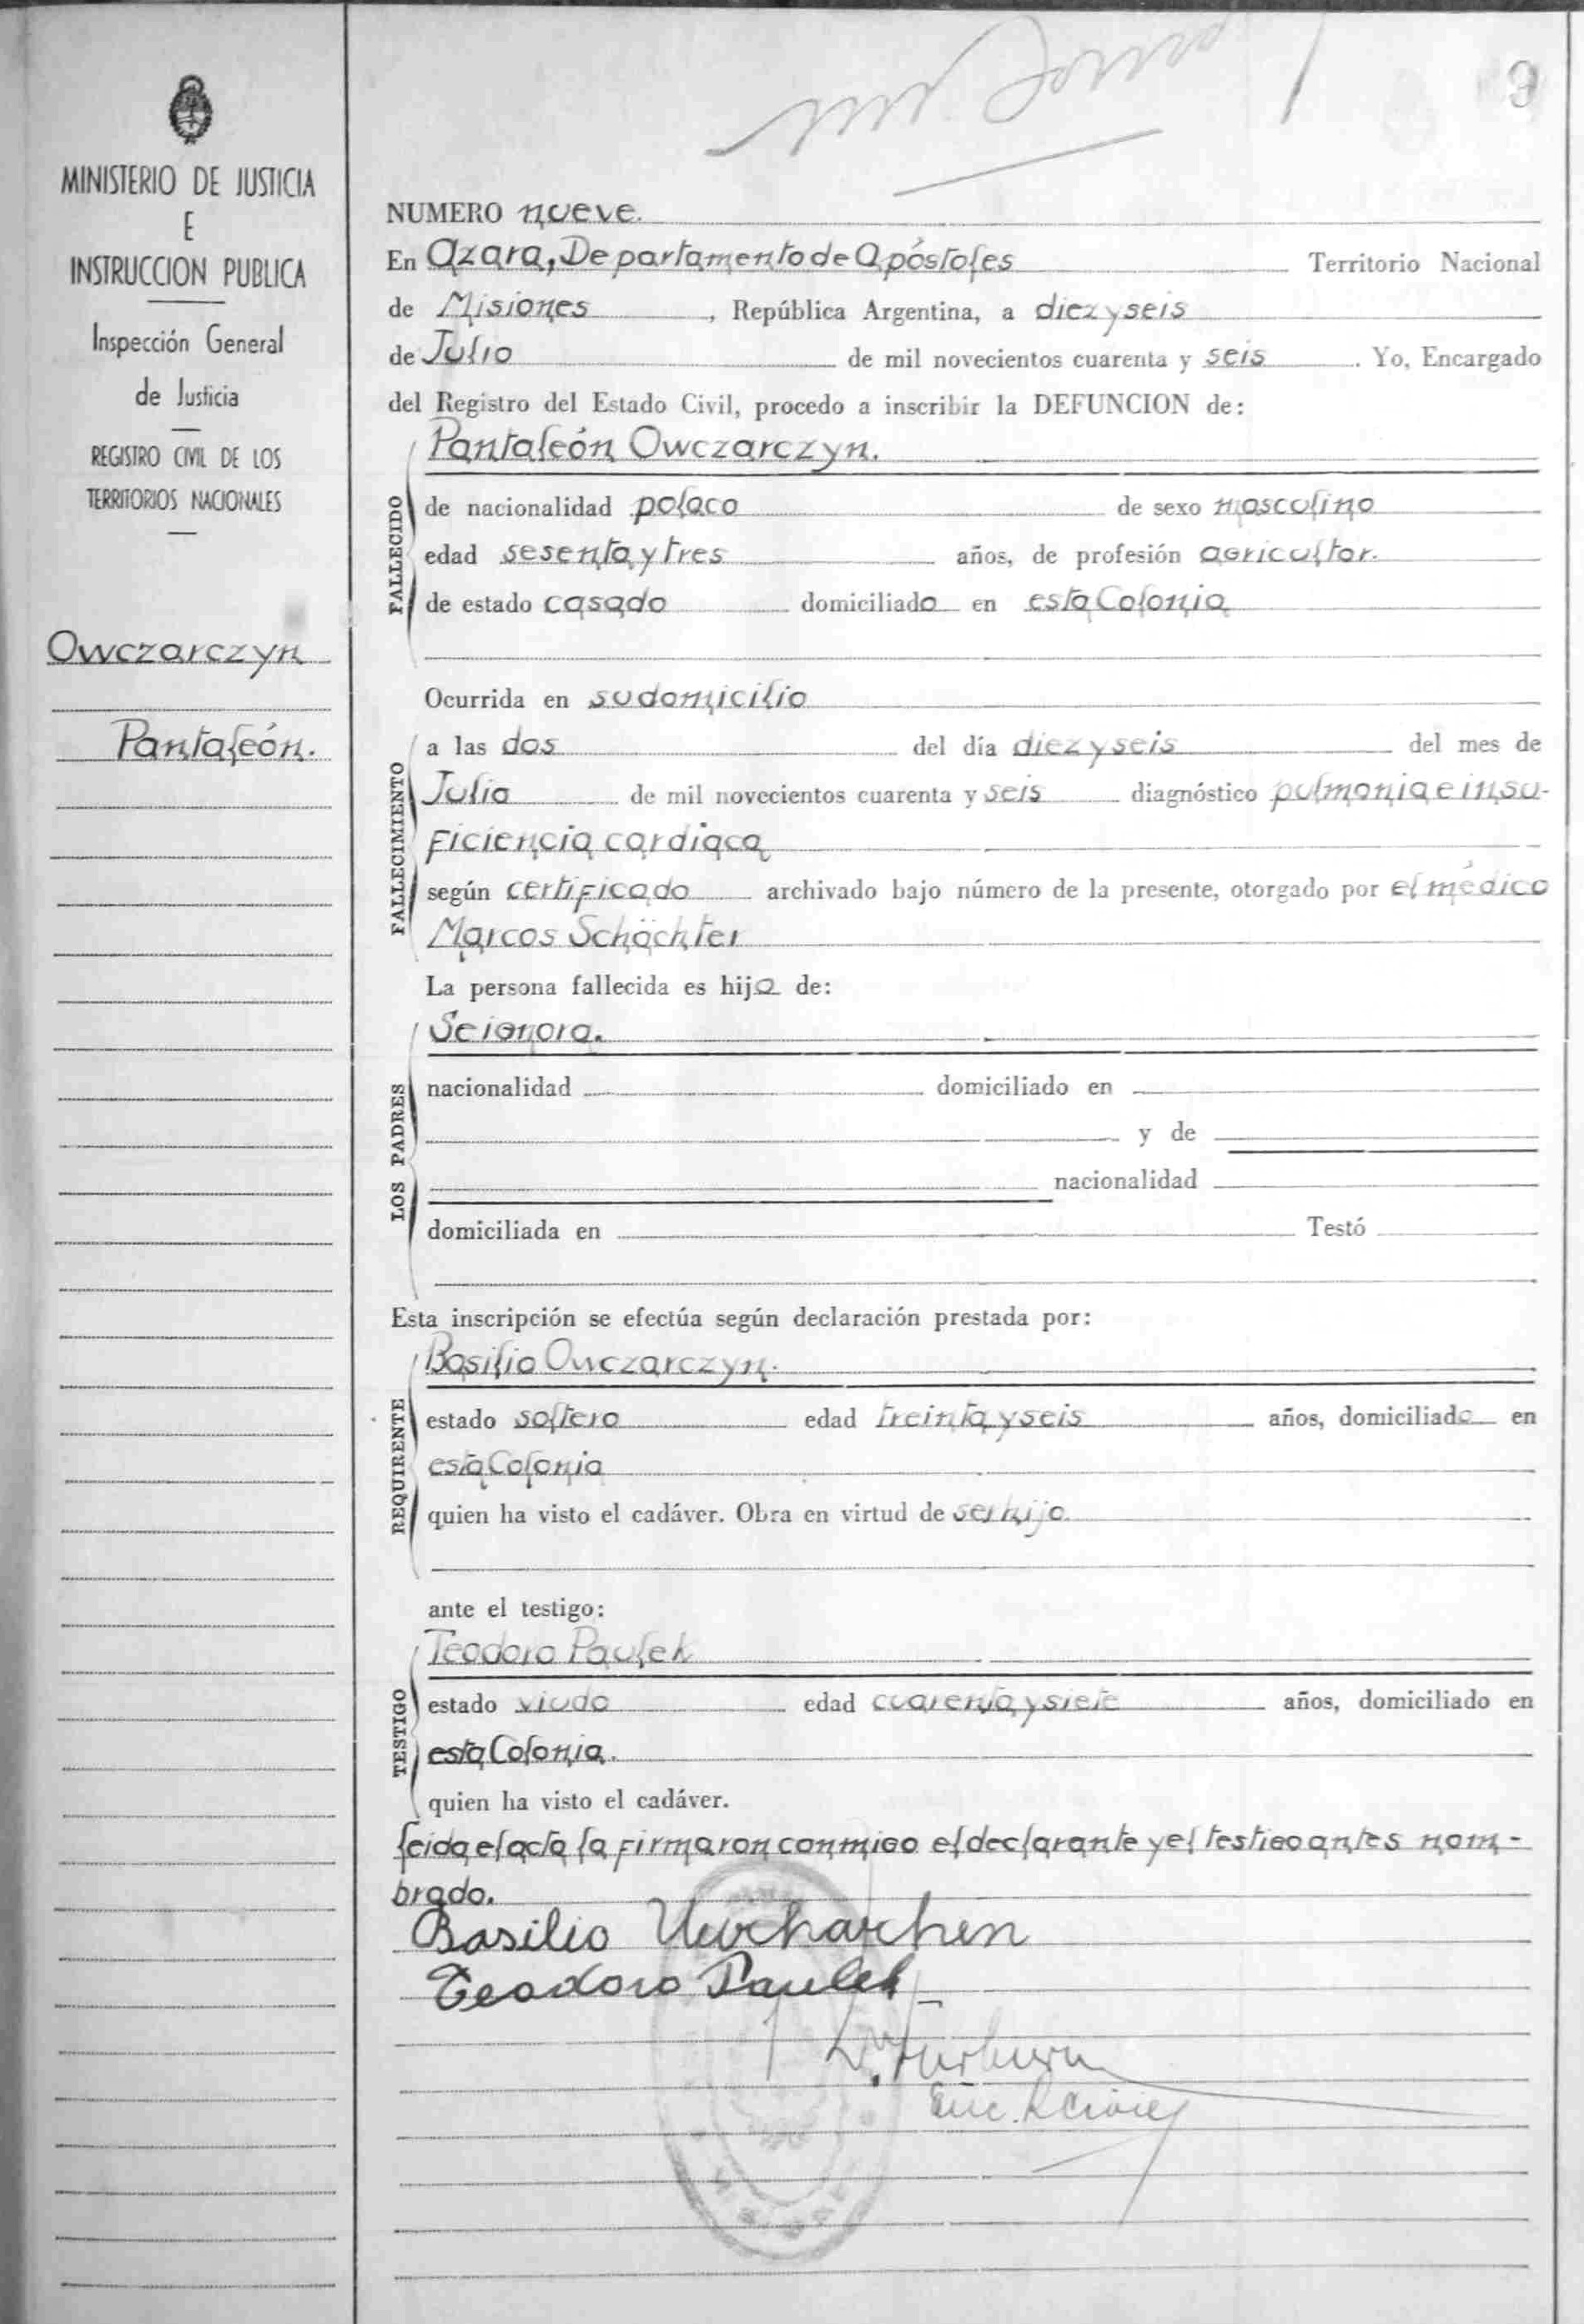 9
MINISTERIO DE JUSTICIA
E
INSTRUCCION PUBLICA
Inspección General
de Justicia
REGISTRO CIVIL DE LOS
TERRITORIOS NACIONALES
Owczarczyn
Pantaleón.
NUMERO nueve.
En Azara, Departamento de Apóstoles Territorio Nacional
de Misiones, República Argentina, a diez y seis
de Julio de mil novecientos cuarenta y seis. Yo, Encargado
del Registro del Estado Civil, procedo a inscribir la DEFUNCION de:
Pantaleón Owczarczyn.
FALLECIDO
de nacionalidad polaco de sexo masculino
edad sesenta y tres años, de profesión agricultor.
de estado casado domiciliado en esta Colonia
Ocurrida en su domicilio
FALLECIMIENTO
a las dos del día diez y seis del mes de
Julio de mil novecientos cuarenta y seis diagnóstico pulmonia e insu-
ficiencia cardiaca
según certificado archivado bajo número de la presente, otorgado por el médico
Marcos Schächter
La persona fallecida es hijo de:
Se ignora.
LOS PADRES
nacionalidad domiciliado en
y de
nacionalidad
domiciliada en Testó
Esta inscripción se efectúa según declaración prestada por:
Basilio Owczarczyn.
REQUIRENTE
estado soltero edad treinta y seis años, domiciliado en
esta Colonia
quien ha visto el cadáver. Obra en virtud de ser hijo.
ante el testigo:
Teodoro Paulek
TESTIGO
estado viudo edad cuarenta y siete años, domiciliado en
esta Colonia.
quien ha visto el cadáver.
leida el acta la firmaron conmigo el declarante y el testigo antes nom-
brado.
Basilio
Teodoro Paulek
Enc. R Civil